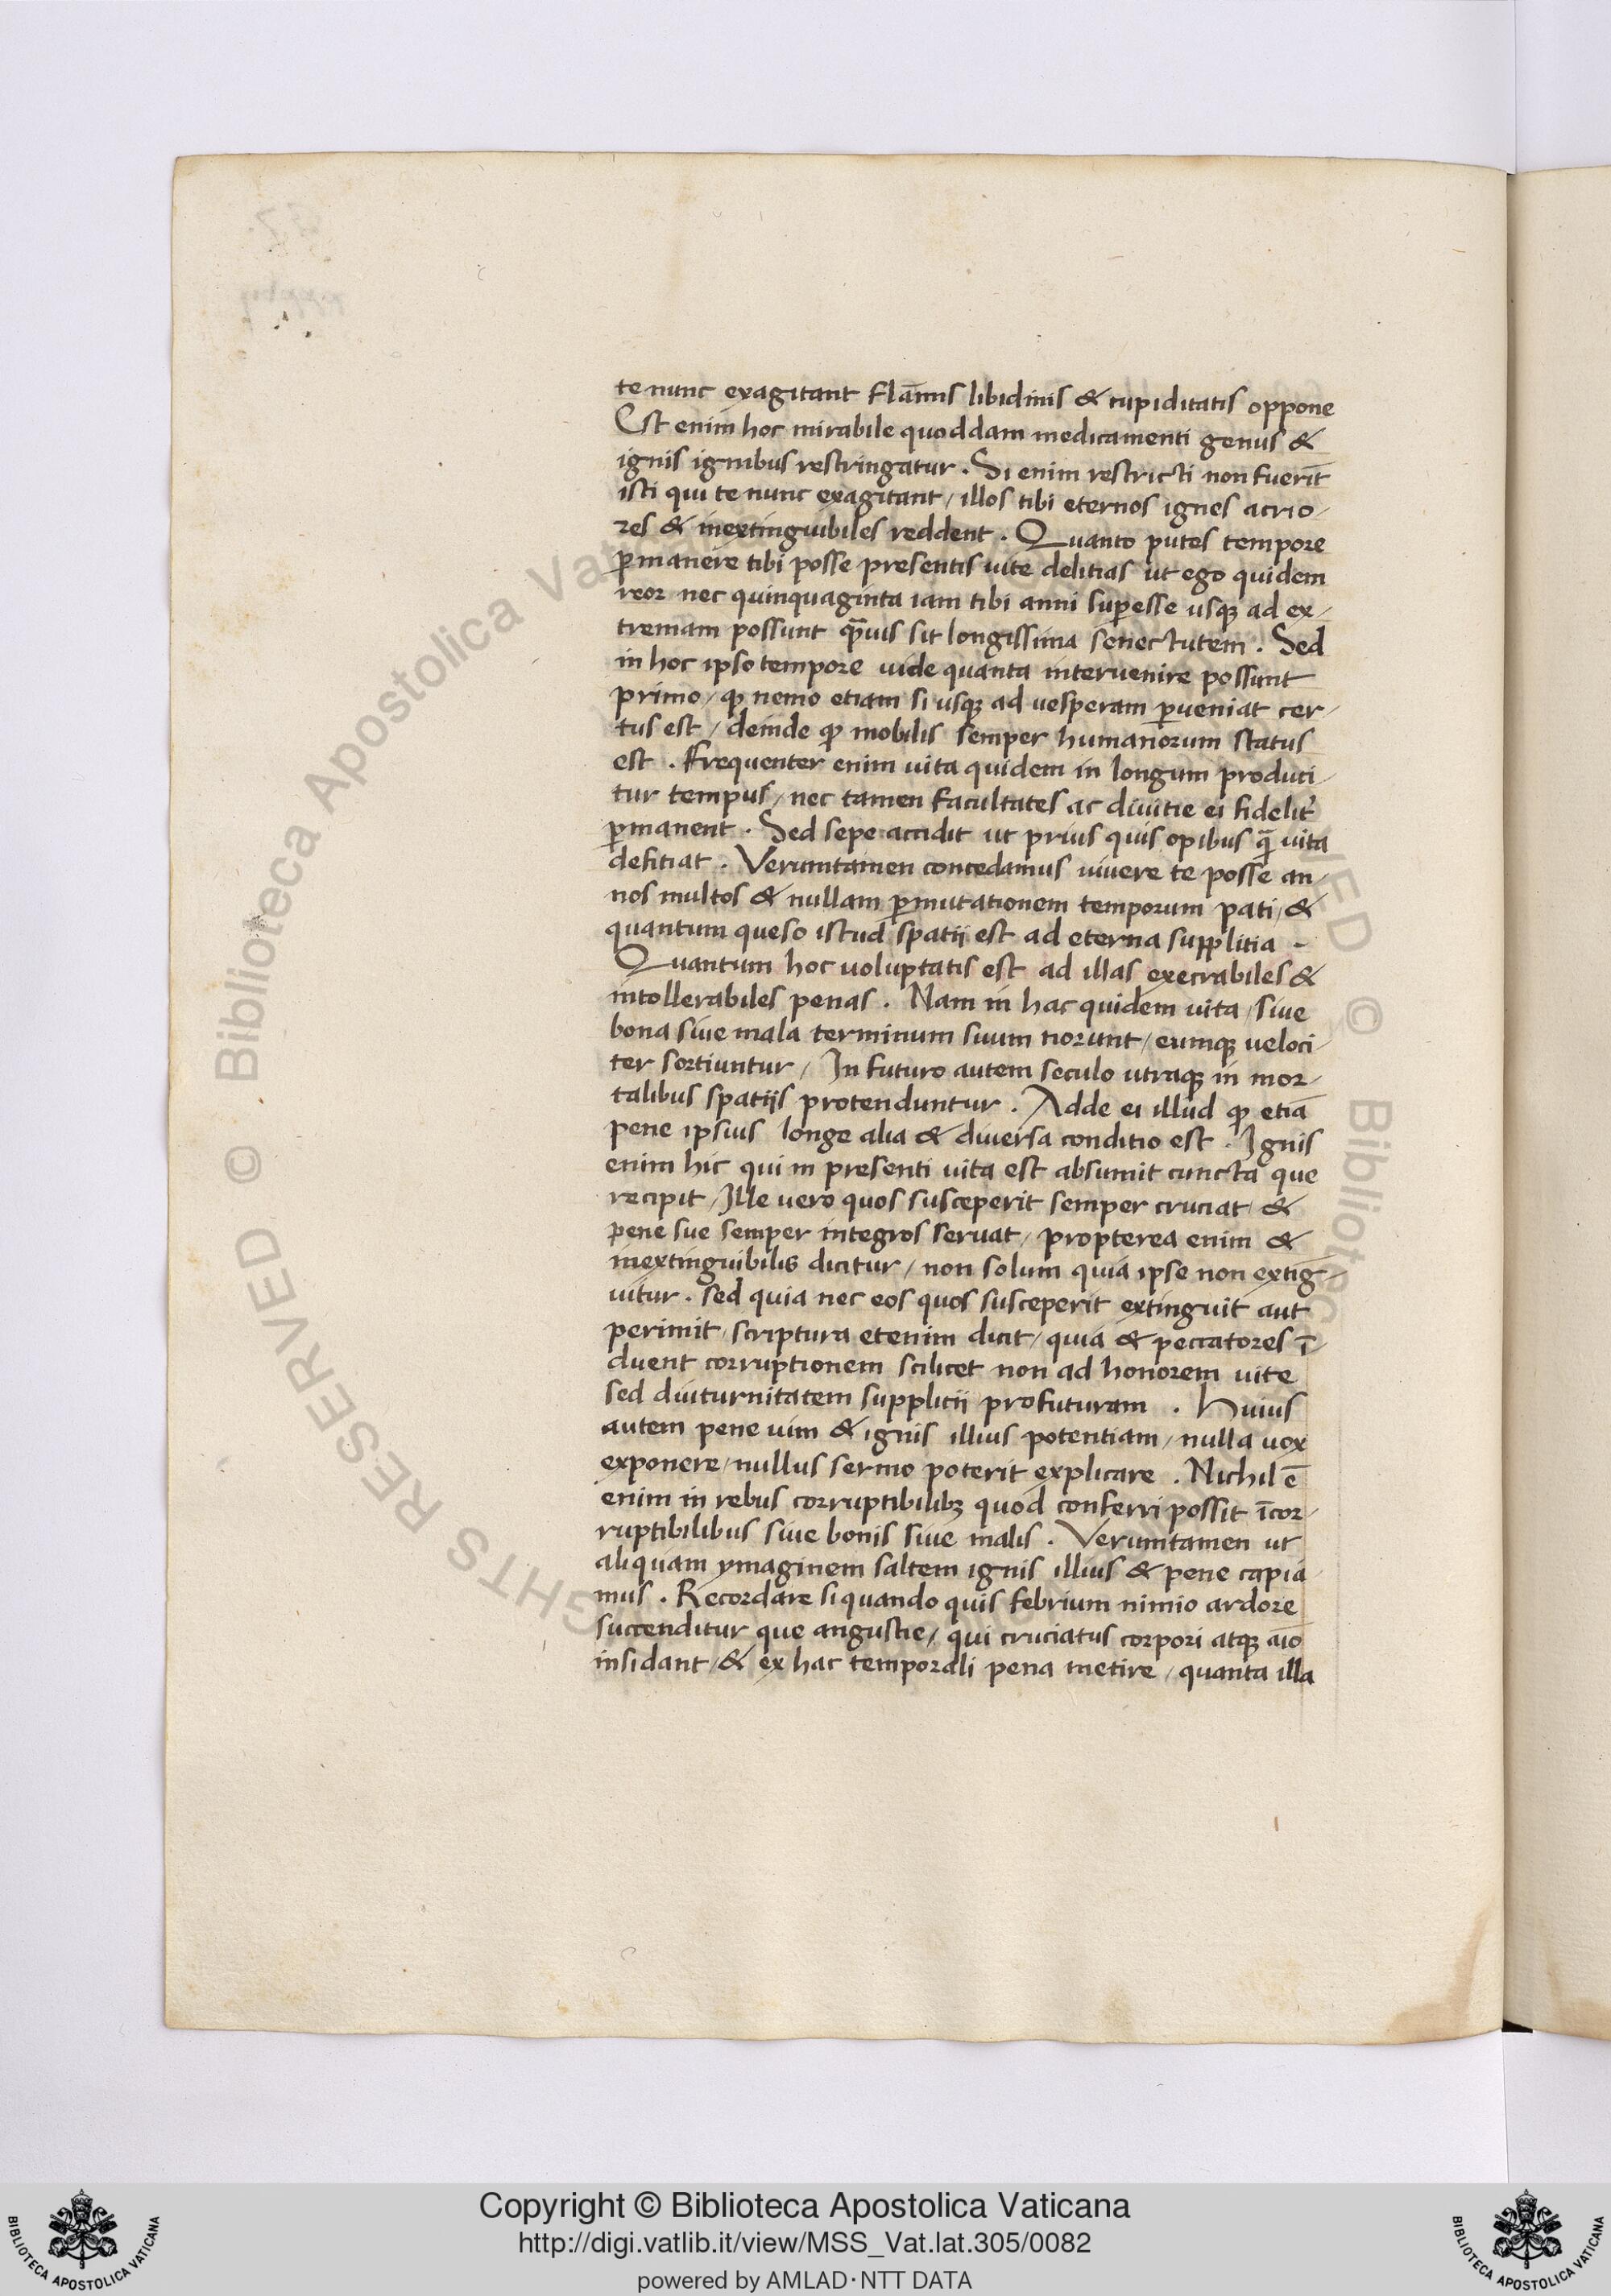 te nunc exagitant flāmis libidinis & cupiditatis oppone
Est enim hoc mirabile quoddam medicamenti genus &
ignis ignibus restringatur. Si enim restricti non fuerīt
isti qui te nunc exagitant/ illos tibi eternos ignes acrio/
res & inextinguibiles reddent. Quanto putes tempore
ꝑmanere tibi posse presentis uite delitias ut ego quidem
reor nec quinquaginta iam tibi anni suꝑesse usqꝫ ad ex/
tremam possunt qᷓuis sit longissima senectutem. Sed
in hoc ipso tempore uide quanta interuenire possunt
primo/ ꝙ nemo etiam si usqꝫ ad uesperam ꝑueniat cer/
tus est/ deinde ꝙ mobilis semper humanorum status
est. Frequenter enim uita quidem in longum produci/
tur tempus/ nec tamen facultates ac diuitie ei fidelit᷑
ꝑmanent. Sed sepe accidit ut prius quis opibus qᷓ uita
defitiat. Verumtamen concedamus uiuere te posse an/
nos multos & nullam ꝑmutationem temporum pati/ &
quantum queso istud spatii est ad eterna supplitia -
Quantum hoc uoluptatis est ad illas execrabiles &
intollerabiles penas. Nam in hac quidem uita/ siue
bona siue mala terminum suum norunt/ eumqꝫ ueloci/
ter sortiuntur/ In futuro autem seculo utraqꝫ in mor/
talibus spatijs protenduntur. Adde ei illud ꝙ etiā
pene ipsius longe alia & diuersa conditio est. Ignis
enim hic qui in presenti uita est absumit cuncta que
recipit/ Ille uero quos susceperit semper cruciat/ &
pene sue semper integros seruat/ propterea enim &
inextinguibilis dicitur/ non solum quia ipse non extīg/
uitur. sed quia nec eos quos susceperit extinguit aut
perimit/ scriptura etenim dicit/ quia & peccatores ī/
duent corruptionem scilicet non ad honorem uite
sed diuturnitatem supplicii profuturam. Huius
autem pene uim & ignis illius potentiam/ nulla uox
exponere/ nullus sermo poterit explicare. Nichil ē
enim in rebus corruptibilibꝫ quod conferri possit īcor/
ruptibilibus siue bonis siue malis. Verumtamen ut
aliquam ymaginem saltem ignis illius & pene capia/
mus. Recordare si quando quis febrium nimio ardore
succenditur que angustie/ qui cruciatus corpori atqꝫ aīo
insidant/ & ex hac temporali pena metire/ quanta illa
© Biblioteca Apostolica Vaticana
Copyright © Biblioteca Apostolica Vaticana
http://digi.vatlib.it/view/MSS_Vat.lat.305/0082
powered by AMLAD·NTT DATA
BIBLIOTECA APOSTOLICA VATICANA
BIBLIOTECA APOSTOLICA VATICANA